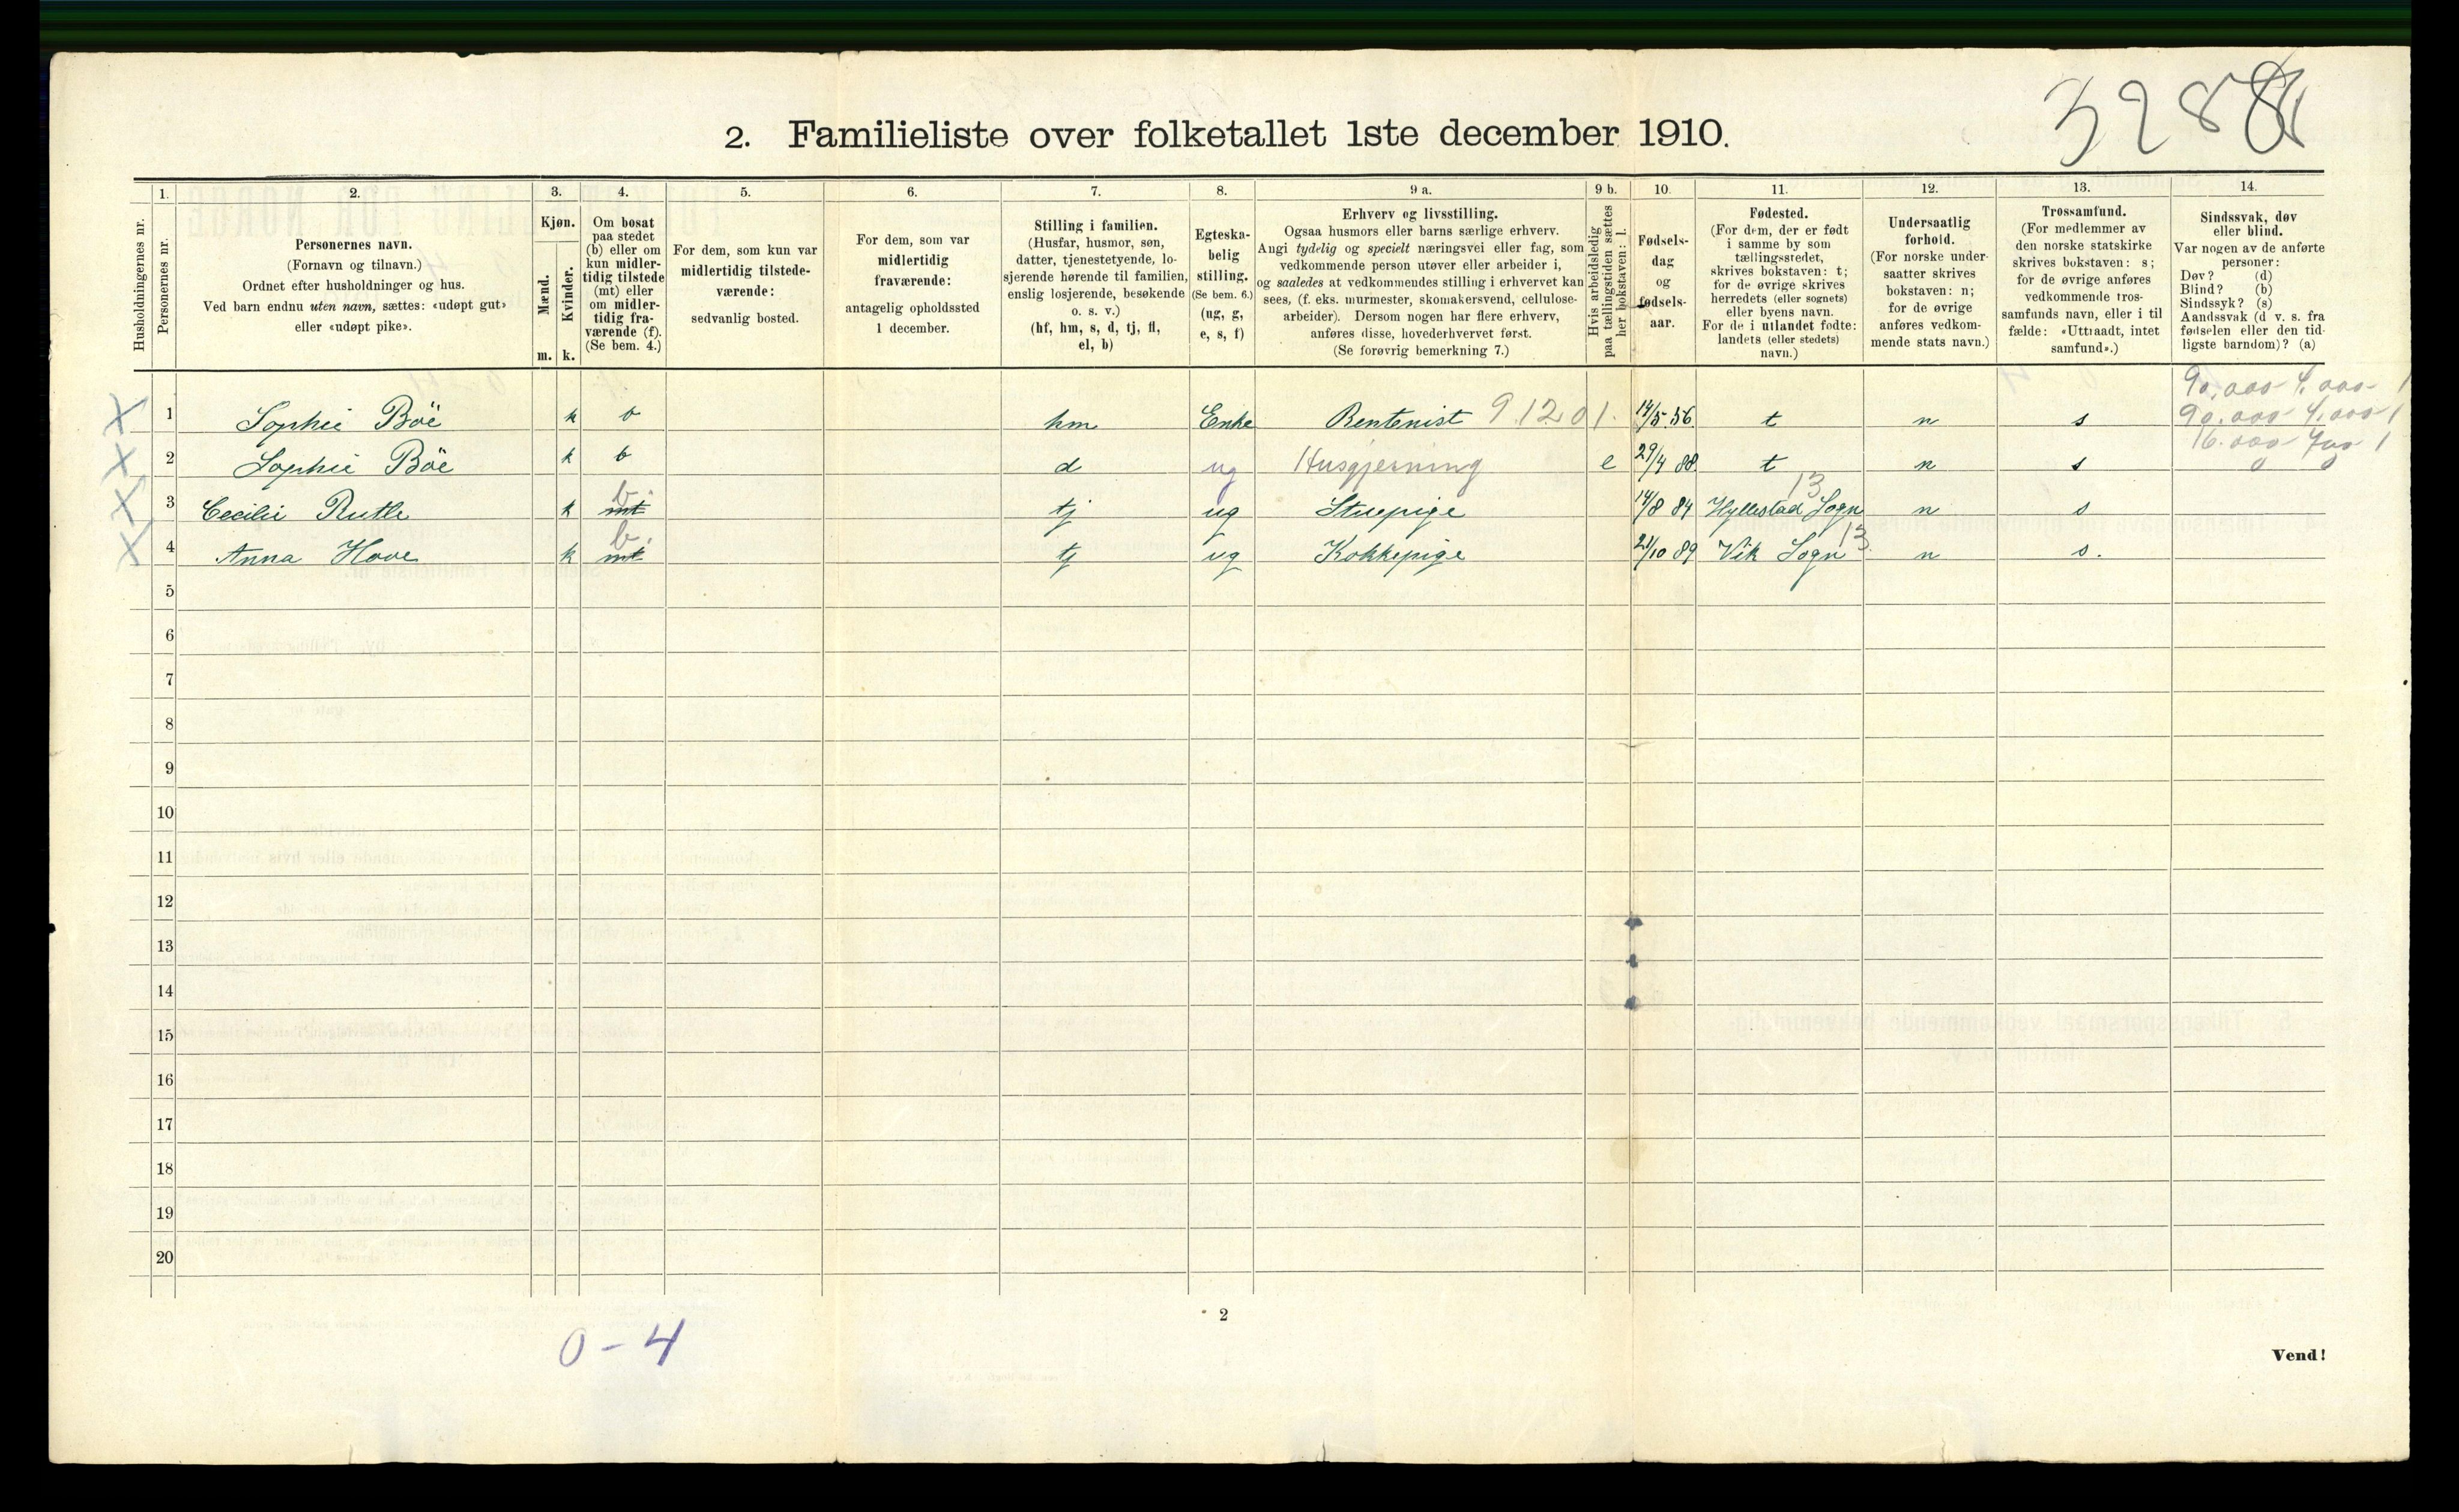 3288
2. Familieliste over folketallet 1ste december 1910.
Husholdningernes nr.
1.
Personernes nr.
2.
Personernes navn.
(Fornavn og tilnavn.)
Ordnet efter husholdninger og hus.
Ved barn endnu uten navn, sættes: «udøpt gut»
eller «udøpt pike».
3.
Kjøn.
Mænd.
Kvinder.
m. k.
4.
Om bosat
paa stedet
(b) eller om
kun midler-
tidig tilstede
(mt) eller
om midler-
tidig fra-
værende (f).
(Se bem. 4.)
5.
For dem, som kun var
midlertidig tilstede-
værende:
sedvanlig bosted.
6.
For dem, som var
midlertidig
fraværende:
antagelig opholdssted
1 december.
7.
Stilling i familien.
(Husfar, husmor, søn,
datter, tjenestetyende, lo-
sjerende hørende til familien,
enslig losjerende, besøkende
o. s. v.)
(hf, hm, s, d, tj, fl,
el, b)
8.
Egteska-
belig
stilling.
(Se bem. 6.)
(ug, g,
e, s, f)
9 a.
Erhverv og livsstilling.
Ogsaa husmors eller barns særlige erhverv.
Angi tydelig og specielt næringsvei eller fag, som
vedkommende person utøver eller arbeider i,
og saaledes at vedkommendes stilling i erhvervet kan
sees, (f. eks. murmester, skomakersvend, cellulose-
arbeider). Dersom nogen har flere erhverv,
anføres disse, hovederhvervet først.
(Se forøvrig bemerkning 7.)
9 b.
Hvis arbeidsledig
paa tællingstiden sættes
her bokstaven: l.
10.
Fødsels-
dag
og
fødsels-
aar.
11.
Fødested.
(For dem, der er født
i samme by som
tællingsstedet,
skrives bokstaven: t;
for de øvrige skrives
herredets (eller sognets)
eller byens navn.
For de i utlandet fødte:
landets (eller stedets)
navn.)
12.
Undersaatlig
forhold.
(For norske under-
saatter skrives
bokstaven: n;
for de øvrige
anføres vedkom-
mende stats navn.)
13.
Trossamfund.
(For medlemmer av
den norske statskirke
skrives bokstaven: s;
for de øvrige anføres
vedkommende tros-
samfunds navn, eller i til-
fælde: «Uttraadt, intet
samfund».)
14.
Sindssvak, døv
eller blind.
Var nogen av de anførte
personer:
Døv? (d)
Blind? (b)
Sindssyk? (s)
Aandssvak (d. v. s. fra
fødselen eller den tid-
ligste barndom)? (a)
90.000 4.000 1
X 1 Sophie Böe k b hm Enke Rentenist 91201. 14/5 56 t n s 90.000 4.000 1
16.000 700 1
X 2 Sophie Böe k b d ug Husgjerning e 29/4 88 t n s 0 0
b. 13
X 3 Cecilie Rutle k mt tj ug Stuepige 14/8 84 Hyllestad Sogn n s
b. 13
X 4 Anna Hove k mt tj ug Kokkepige 21/10 89 Vik Sogn n s.
5
6
7
8
9
10
11
12
13
14
15
16
17
18
19
20
2
0-4
Vend!